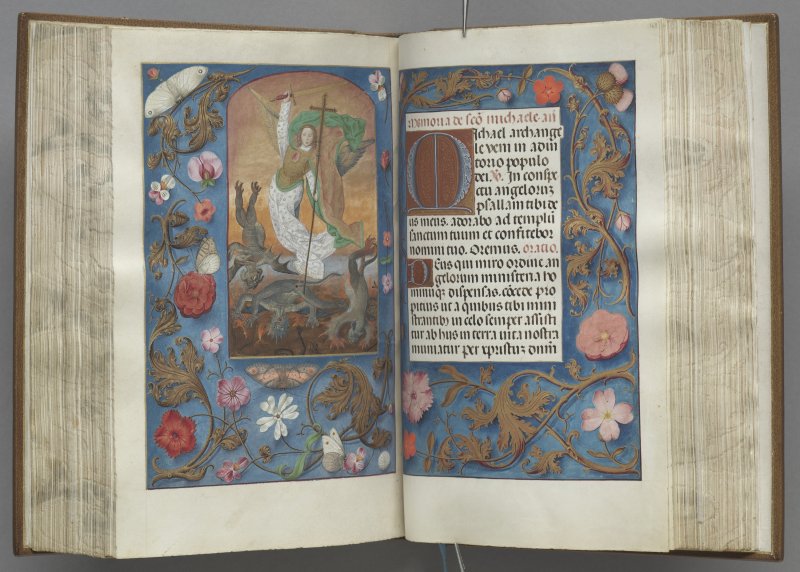 Memoria de sco michaele. añ
Michael archange
le veni in adiu
torio populo
dei. V. In conspe
ctu angelorum
psallam tibi de
us meus. adorabo ad templū
sanctum tuum et confitebor
nomini tuo. Oremus. oratio.
Deus qui miro ordine an
gelorum ministeria ho
minūq; dispensas. cōcede pro
pitius ut a quibus tibi mini
strantibus in celo semper assisti
tur ab hiis in terra vita nostra
muniatur per xpristum dñm